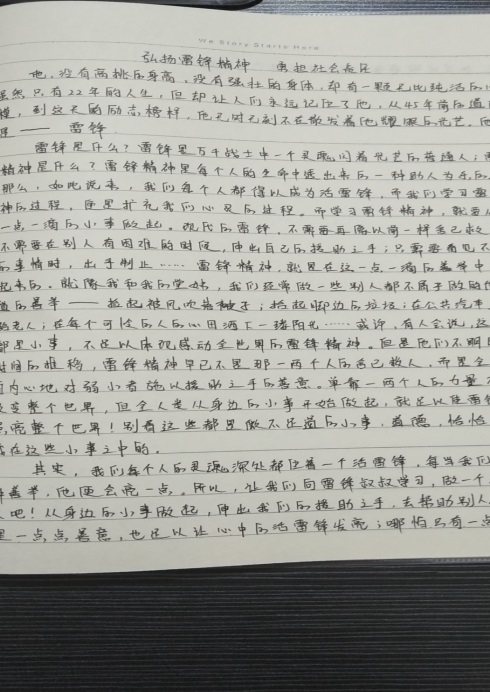 We Story Starts Here
弘扬雷锋精神 勇担社会责任
他,没有高挑的身高,没有强壮的身体,却有一颗无比纯洁的
虽然只有22年的人生,但却让人们永远记住了他,从45年前的道
模,到这天的励志榜样,他无时无刻不在散发着他耀眼的光芒。他
是——雷锋
雷锋是什么?雷锋是万千战士中一个灵魂闪着光芒的普通人;
精神是什么?雷锋精神是每个人的生命中透出来的一种助人为乐的
那么,如此说来,我们每个人都得以成为活雷锋,而我们学习雷
神的过程,便是扩充我们心灵的过程。而学习雷锋精神,就要
一点一滴的小事做起。现代的雷锋,不需要再像以前一样舍己救
不需要在别人有困难的时候,伸出自己的援助之手;只需要看见不
的事情时,出手制止……雷锋精神,就是在这一点一滴的善举中
起来的。就像我和我的堂姑,我们经常做一些别人都不屑于做的
道的善举——扶起被风吹落被子;拾起脚边的垃圾;在公共汽车
的老人;在每个可怜的人的心田洒下一缕阳光……或许,有人会说,这
都是小事,不足以体现感动全世界的雷锋精神。但是他们不明
时间的推移,雷锋精神早已不是那一两个人的舍己救人,而是全
内心地对弱小者施以援助之手的善意。单靠一两个人的力量
改变整个世界,但全人类从身边的小事开始做起,就足以使雷
亮整个世界!别看这些都是微不足道的小事,道德,恰恰
在这些小事之中的。
其实,我们每个人的灵魂深处都住着一个活雷锋,每当我们
善举,他便会亮一点。所以,让我们向雷锋叔叔学习,做一个
人吧!从身边的小事做起,伸出我们的援助之手,去帮助别人,
是一点点善意,也足以让心中的活雷锋发亮;哪怕只有一点